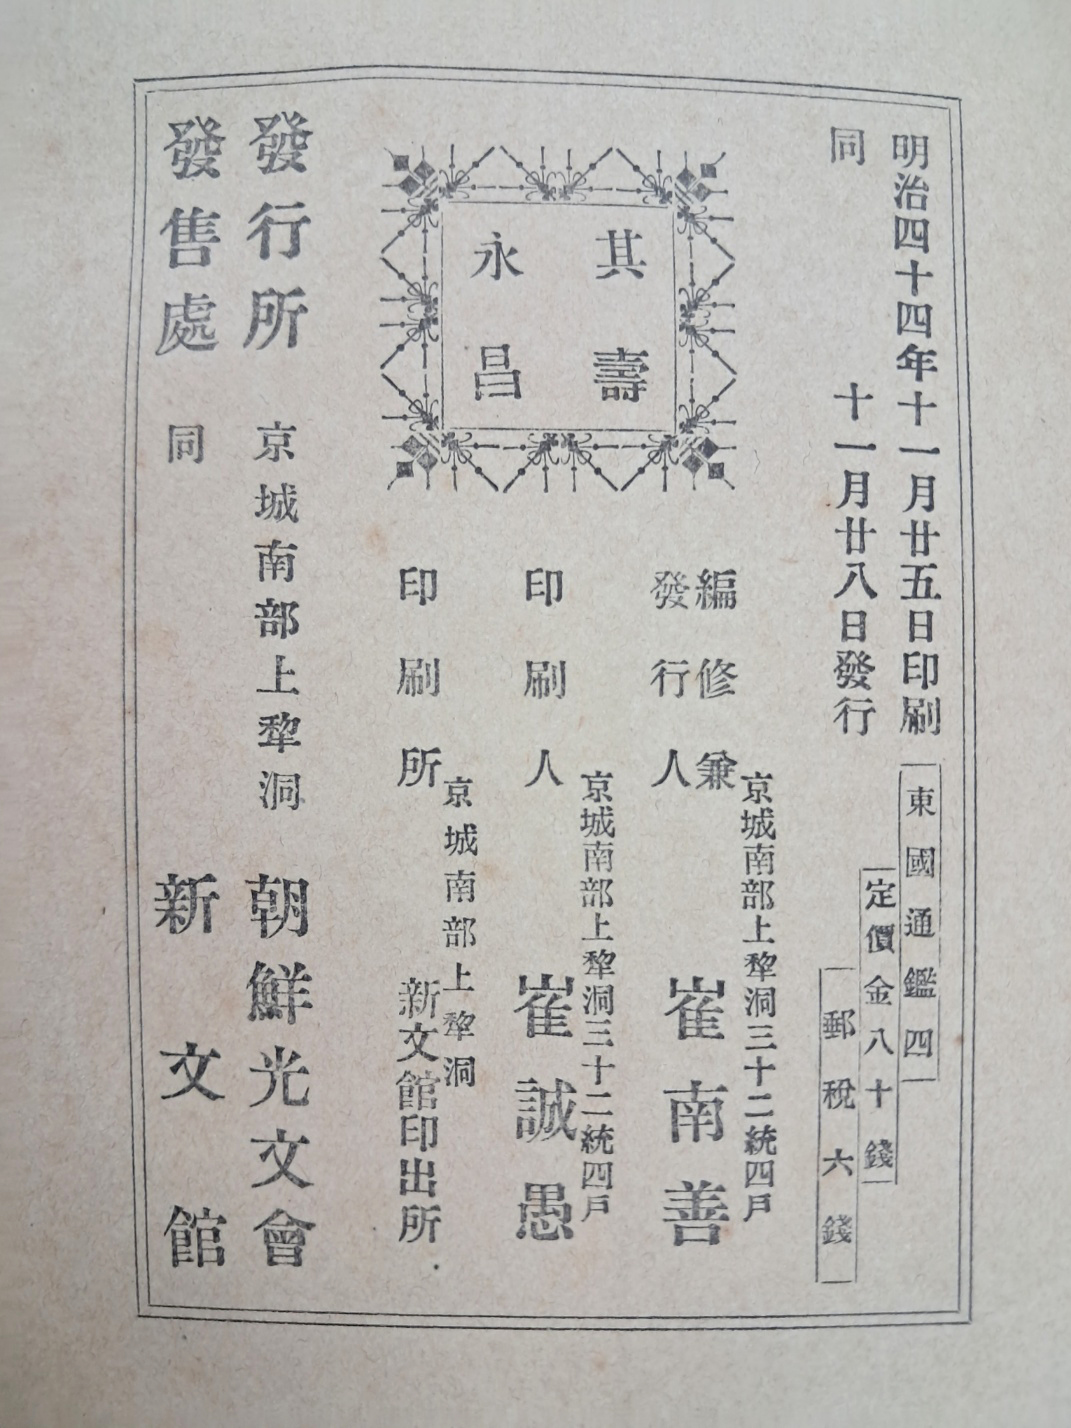 明治四十四年十一月廿五日印刷
同 十一月廿八日發行
東國通鑑四
定價金八十錢
郵稅六錢
其壽
永昌
京城南部上犂洞三十二統四戶
編修兼
發行人 崔南善
京城南部上犂洞三十二統四戶
印刷人 崔誠愚
京城南部上犂洞
印刷所 新文館印出所
發行所 京城南部上犂洞 朝鮮光文會
發售處 同 新文館